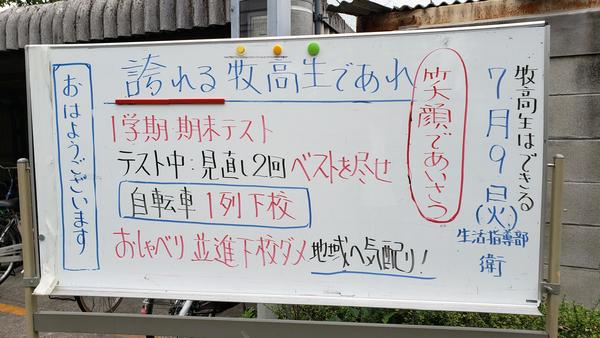 牧高生はできる
7月9日(火)
生活指導部
衛
笑顔であいさつ
誇れる牧高生であれ
1学期 期末テスト
テスト中:見直し2回 ベストを尽せ
自転車 1列下校
おしゃべり 並進下校ダメ 地域へ気配り!
おはようございます